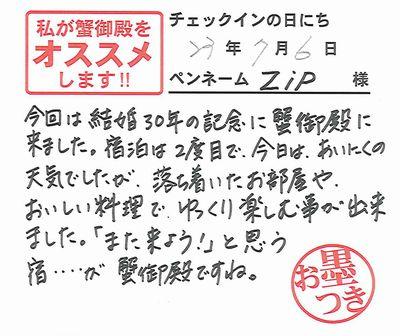 私が蟹御殿を
オススメ
します!!
チェックインの日にち
年7月6日
ペンネーム ZiP 様
今回は結婚30年の記念に蟹御殿に
来ました。宿泊は2度目で、今日は、あいにくの
天気でしたが、落ち着いたお部屋や、
おいしい料理で、ゆっくり楽しむ事が出来
ました。「また来よう!」と思う
宿‥‥が蟹御殿ですね。
お墨
つき